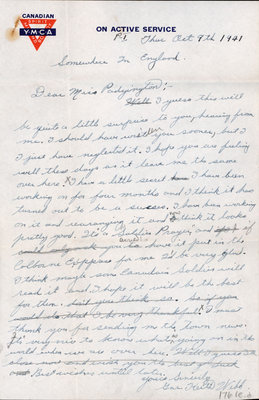 CANADIAN
SPIRIT
YMCA
ON ACTIVE SERVICE
P1 Thur Oct 9th 1941
Somewhere In England.
Dear Miss Padgington:-
Well I guess this will
be quite a little surprise to you, hearing from
me. I should have written you sooner, but I
I just have neglected it. I hope you are feeling
well these days as it leave me the same
over here. I have a little secret I have been
working on for four months and I think it has
turned out to be a success. I have been working
on it and rearranging it and I think it looks
pretty good. It's a Soldiers Prayer and
you to have it put in the
Colborne Express for me I'd be very glad.
I think many a son Canadian Soldier will
read it and I hope it will be the best
for them. So if you
would do that I be very thankful. I must
thank you for sending me the town news.
It's very nice to know what's going on in the
world when we are over here. Well I guess I'll
close now
Best wishes until later
Yours Sincerely
Gnr. Keith Webb